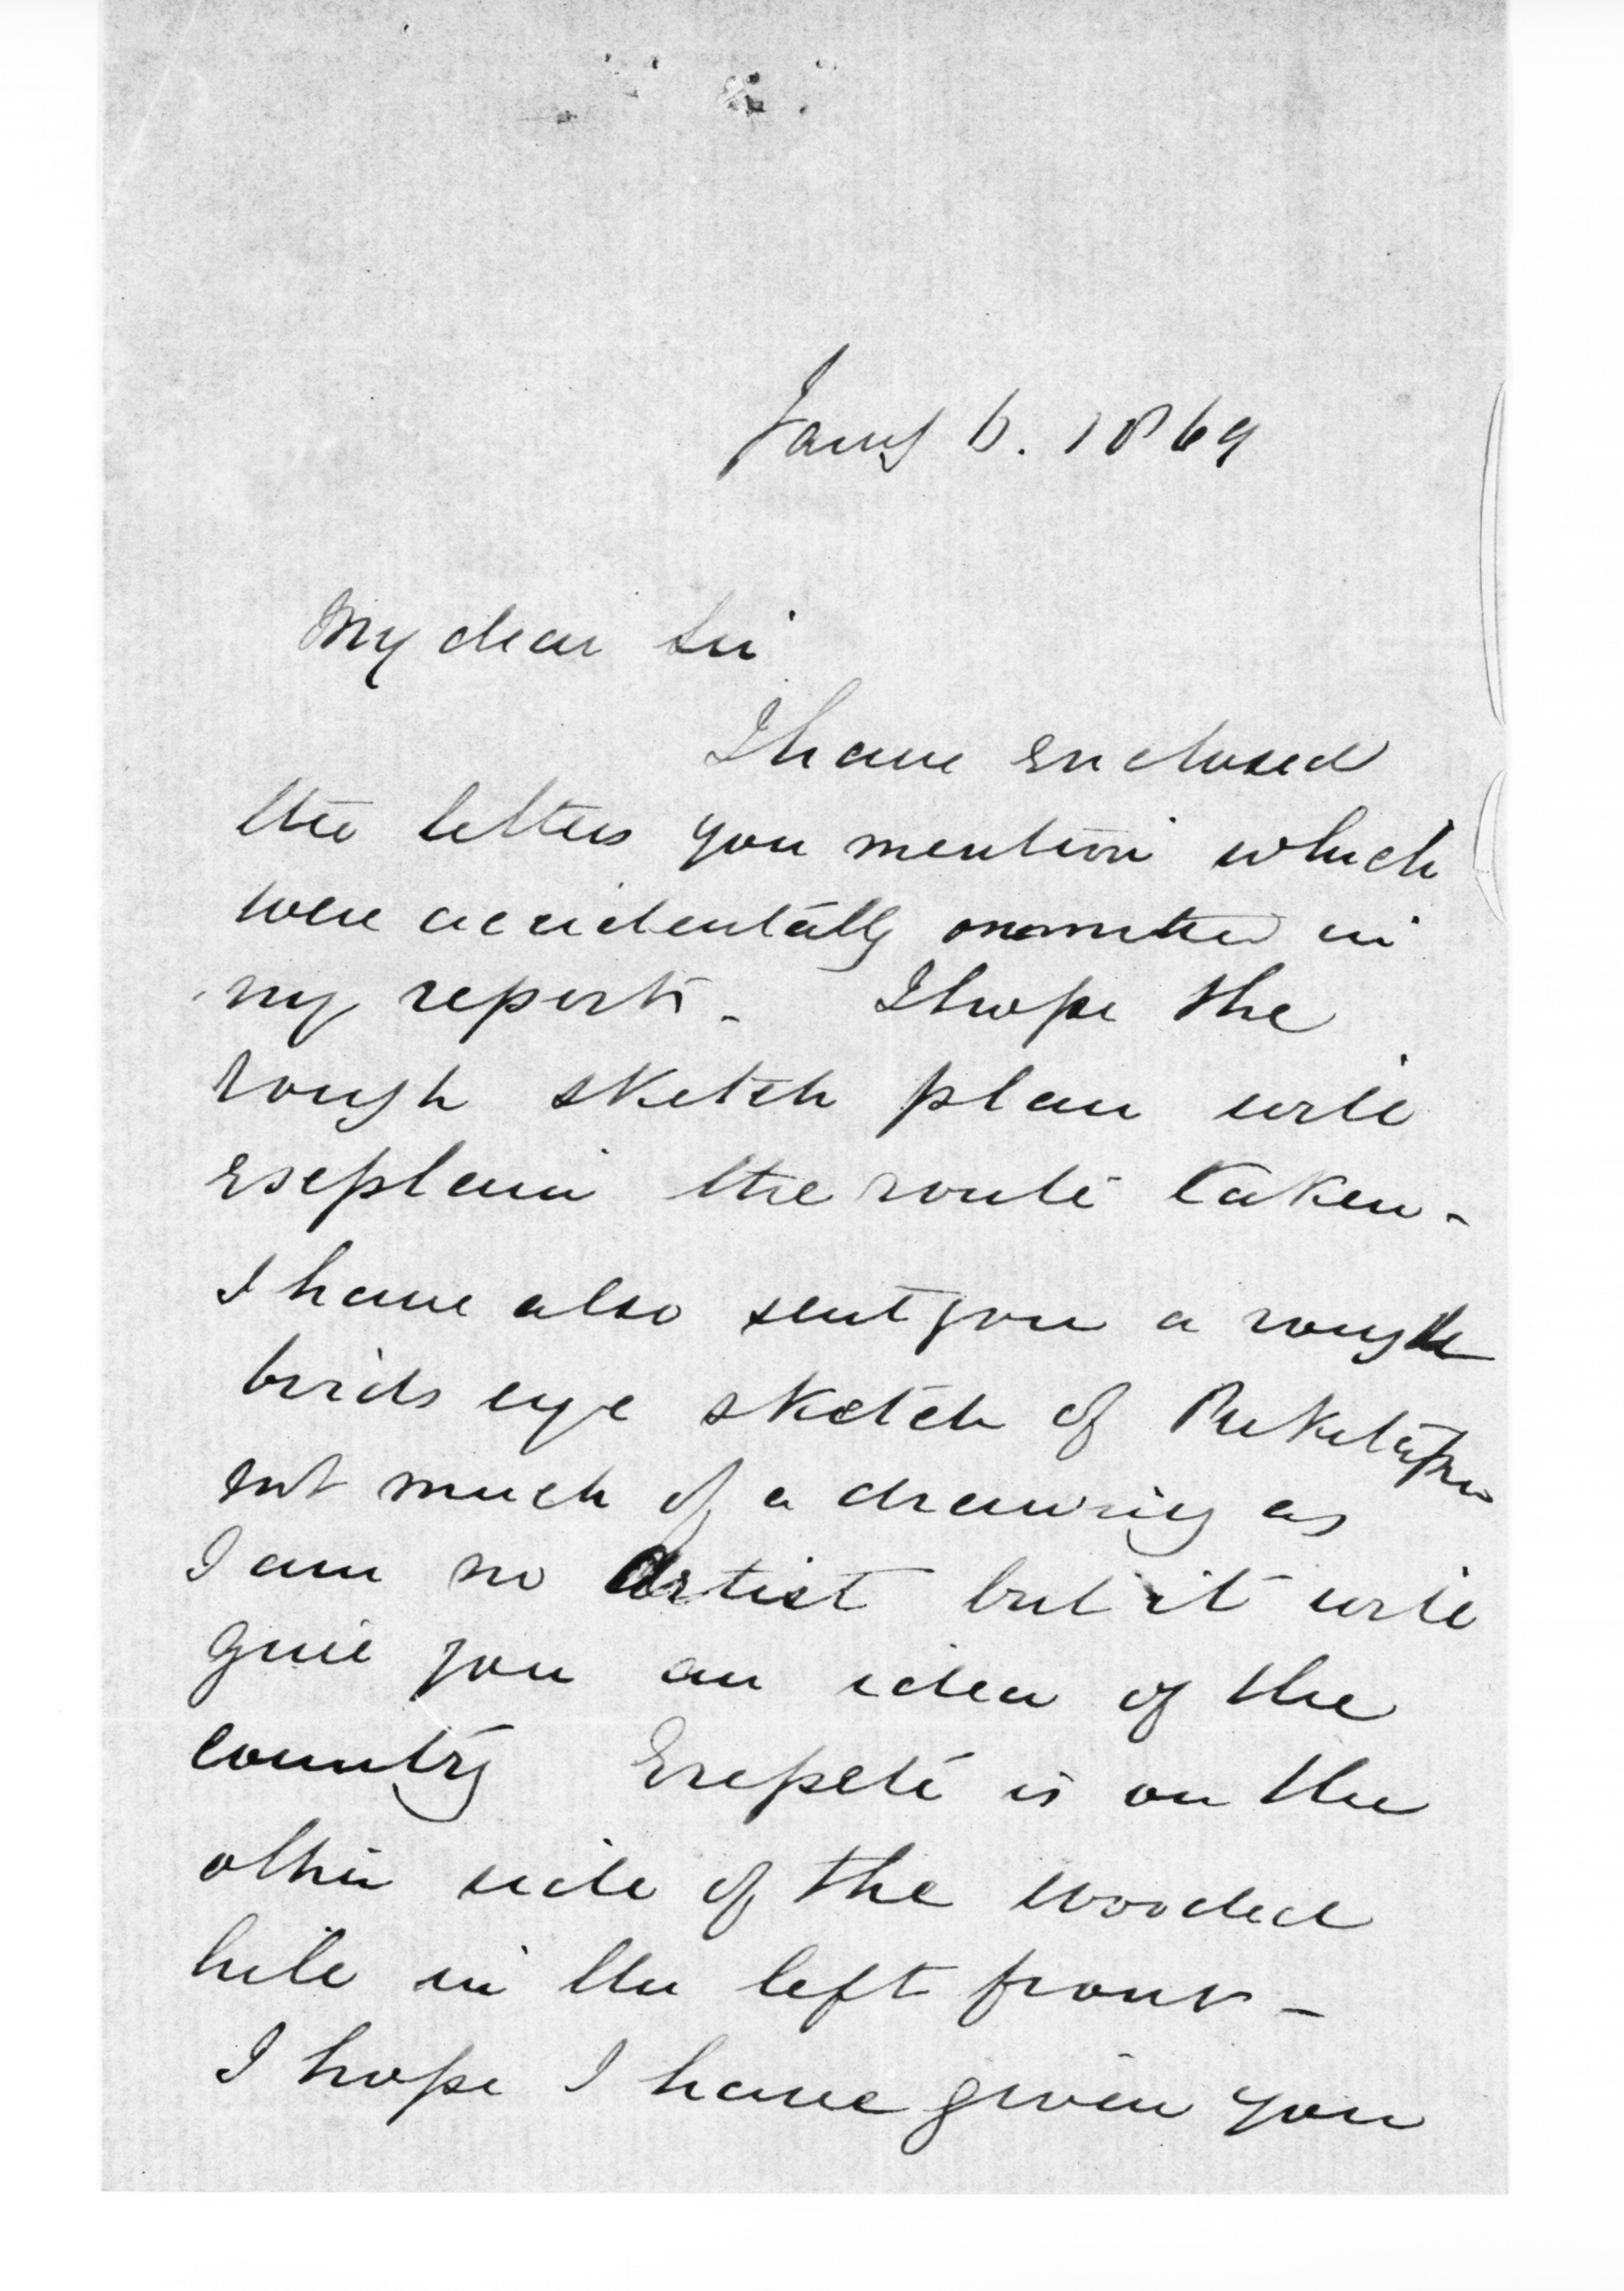 Jany 6. 1869
My dear Sir
I have enclosed
the letters you mention which
were accidentally ommitted in
my report. I hope the
rough sketch plan will
explain the route taken -
I have also sent you a rough
birds eye sketch of Puketapu
not much of a drawing as
I am no Artist but it will
give you an idea of the
country Erepeti is on the
other side of the wooded
hill in the left front -
I hope I have given you